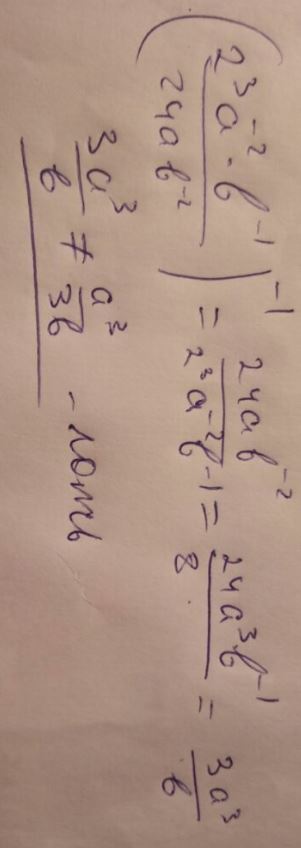 (2³a⁻²·b⁻¹ / 24ab⁻²)⁻¹ = 24ab⁻² / 2³a⁻²b⁻¹ = 24a³b⁻¹ / 8 = 3a³ / b
3a³ / b ≠ a³ / 3b - ложь